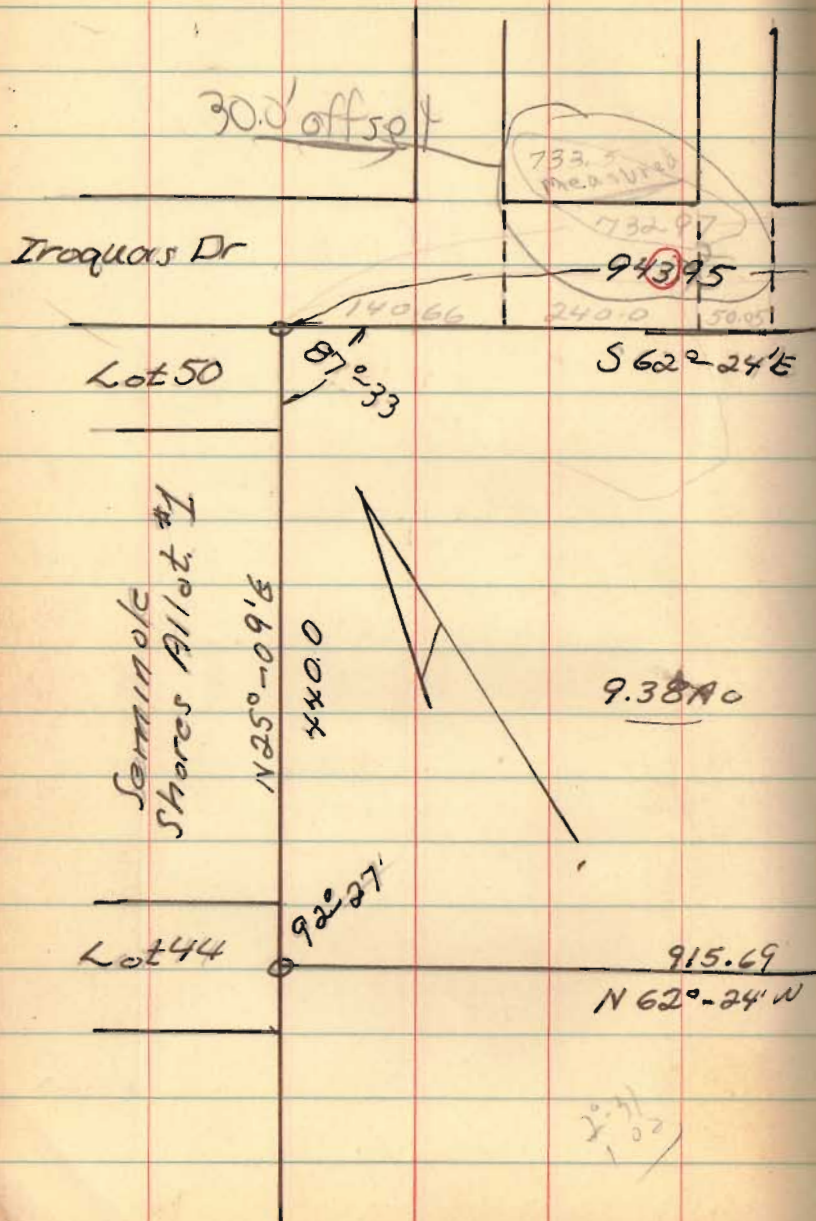 30.0' offset
733.5
measured
732.97
Iroquois Dr
943.95
140.66 240.0 50.05
S 62°-24'E
Lot 50
87°-33
Seminole
Shores Allot. #1
N25°-09'E
440.0
9.38 Ac
92°-27'
Lot 44
915.69
N 62°-24' W